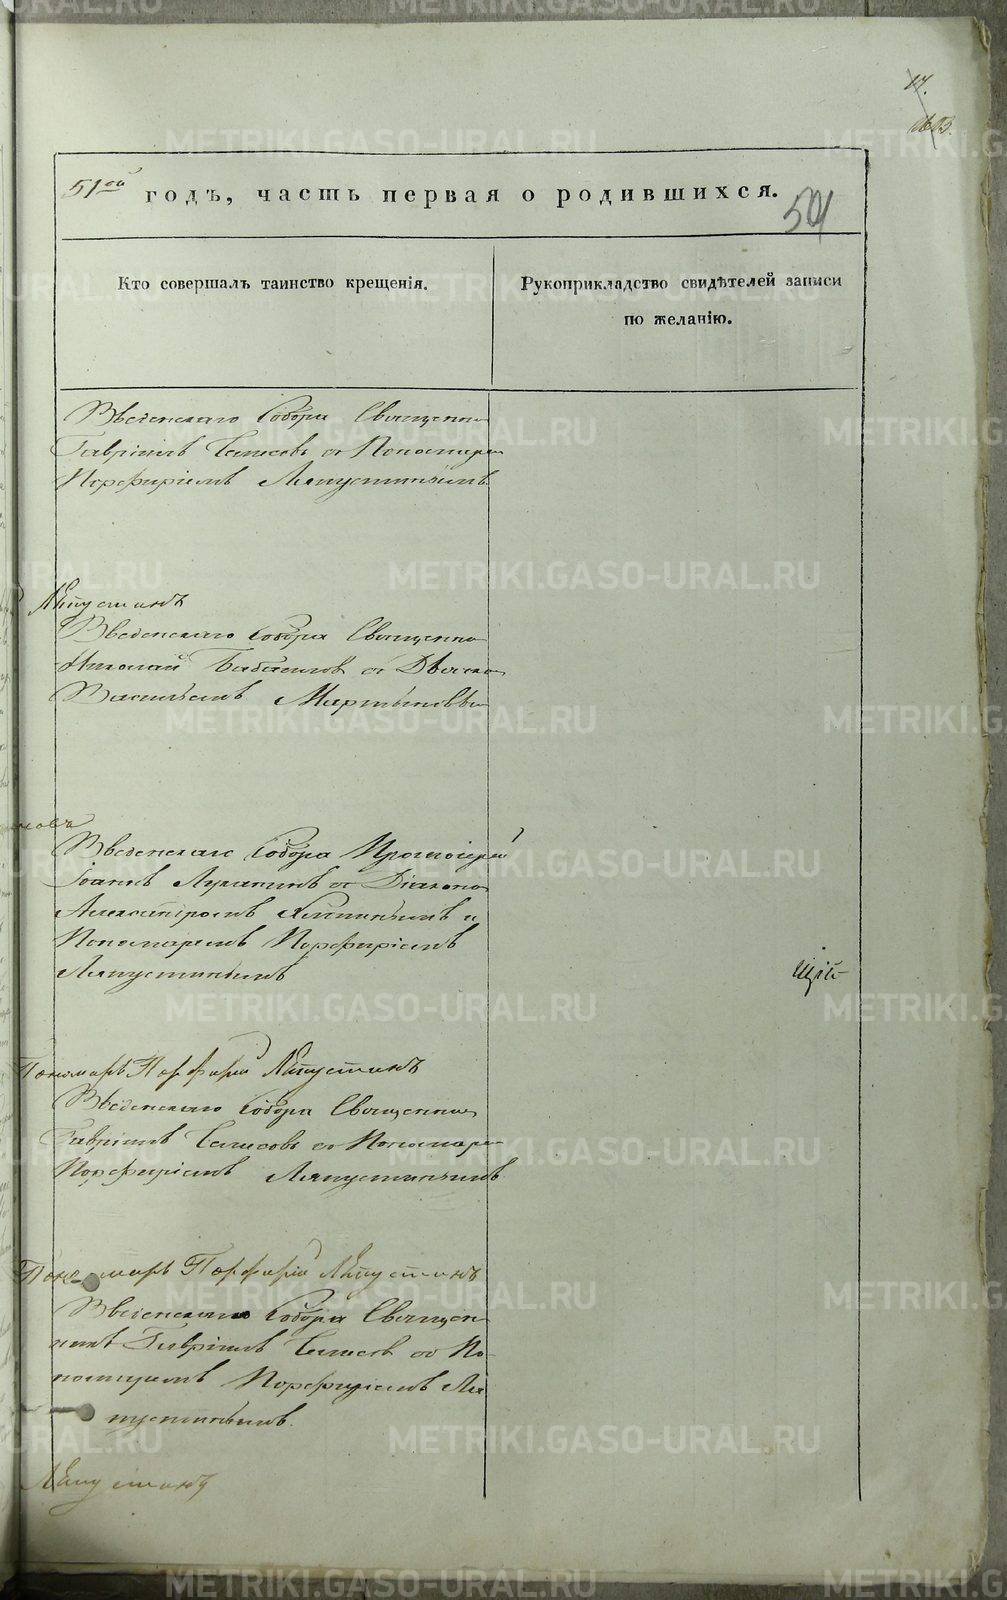 17.
51ой годъ, часть первая о родившихся.
501
Кто совершалъ таинство крещенія.
Рукоприкладство свидѣтелей записи
по желанію.
Введенскаго Собора Священни
Гавріилъ съ Пономаре
Порфиріемъ Ляпустинымъ
Ляпустинъ
Введенскаго Собора Священно
Николай съ Діако
Васильемъ Мартыновы
Введенскаго Собора Протоіерей
Іоаннъ Луканинъ съ Діакономъ
Александромъ и
Пономаремъ Порфиріемъ
Ляпустинымъ
Пономарь Порфирій Ляпустинъ
Введенскаго Собора Священник
Гавріилъ со Пономаре
Порфиріемъ Ляпустинымъ
Пономарь Порфирій Ляпустинъ
Введенскаго Собора Священ
никъ Гавріилъ со По
номаремъ Порфиріемъ Ля
пустинымъ.
Ляпустинъ
METRIKI.GASO-URAL.RU